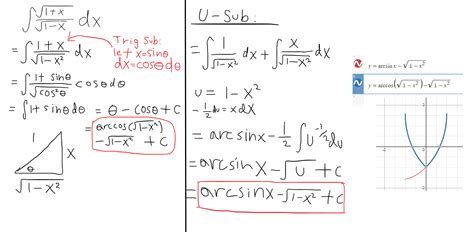 ∫ √(1+x)/√(1-x) dx
Trig Sub:
let x=sinθ
dx=cosθdθ
= ∫ (1+x)/√(1-x²) dx
= ∫ (1+sinθ)/√(cos²θ) cosθdθ
= ∫ 1+sinθdθ = θ - cosθ + C
= arccos(√(1-x²))
-√(1-x²) + C
1
x
θ
√(1-x²)
U-Sub:
= ∫ 1/√(1-x²) dx + ∫ x/√(1-x²) dx
u = 1-x²
-½du = xdx
= arcsinx - ½ ∫ u^(-1/2) du
= arcsinx - √u + C
= arcsinx - √(1-x²) + C
y = arcsin x - √(1-x²)
y = arccos(√(1-x²)) - √(1-x²)